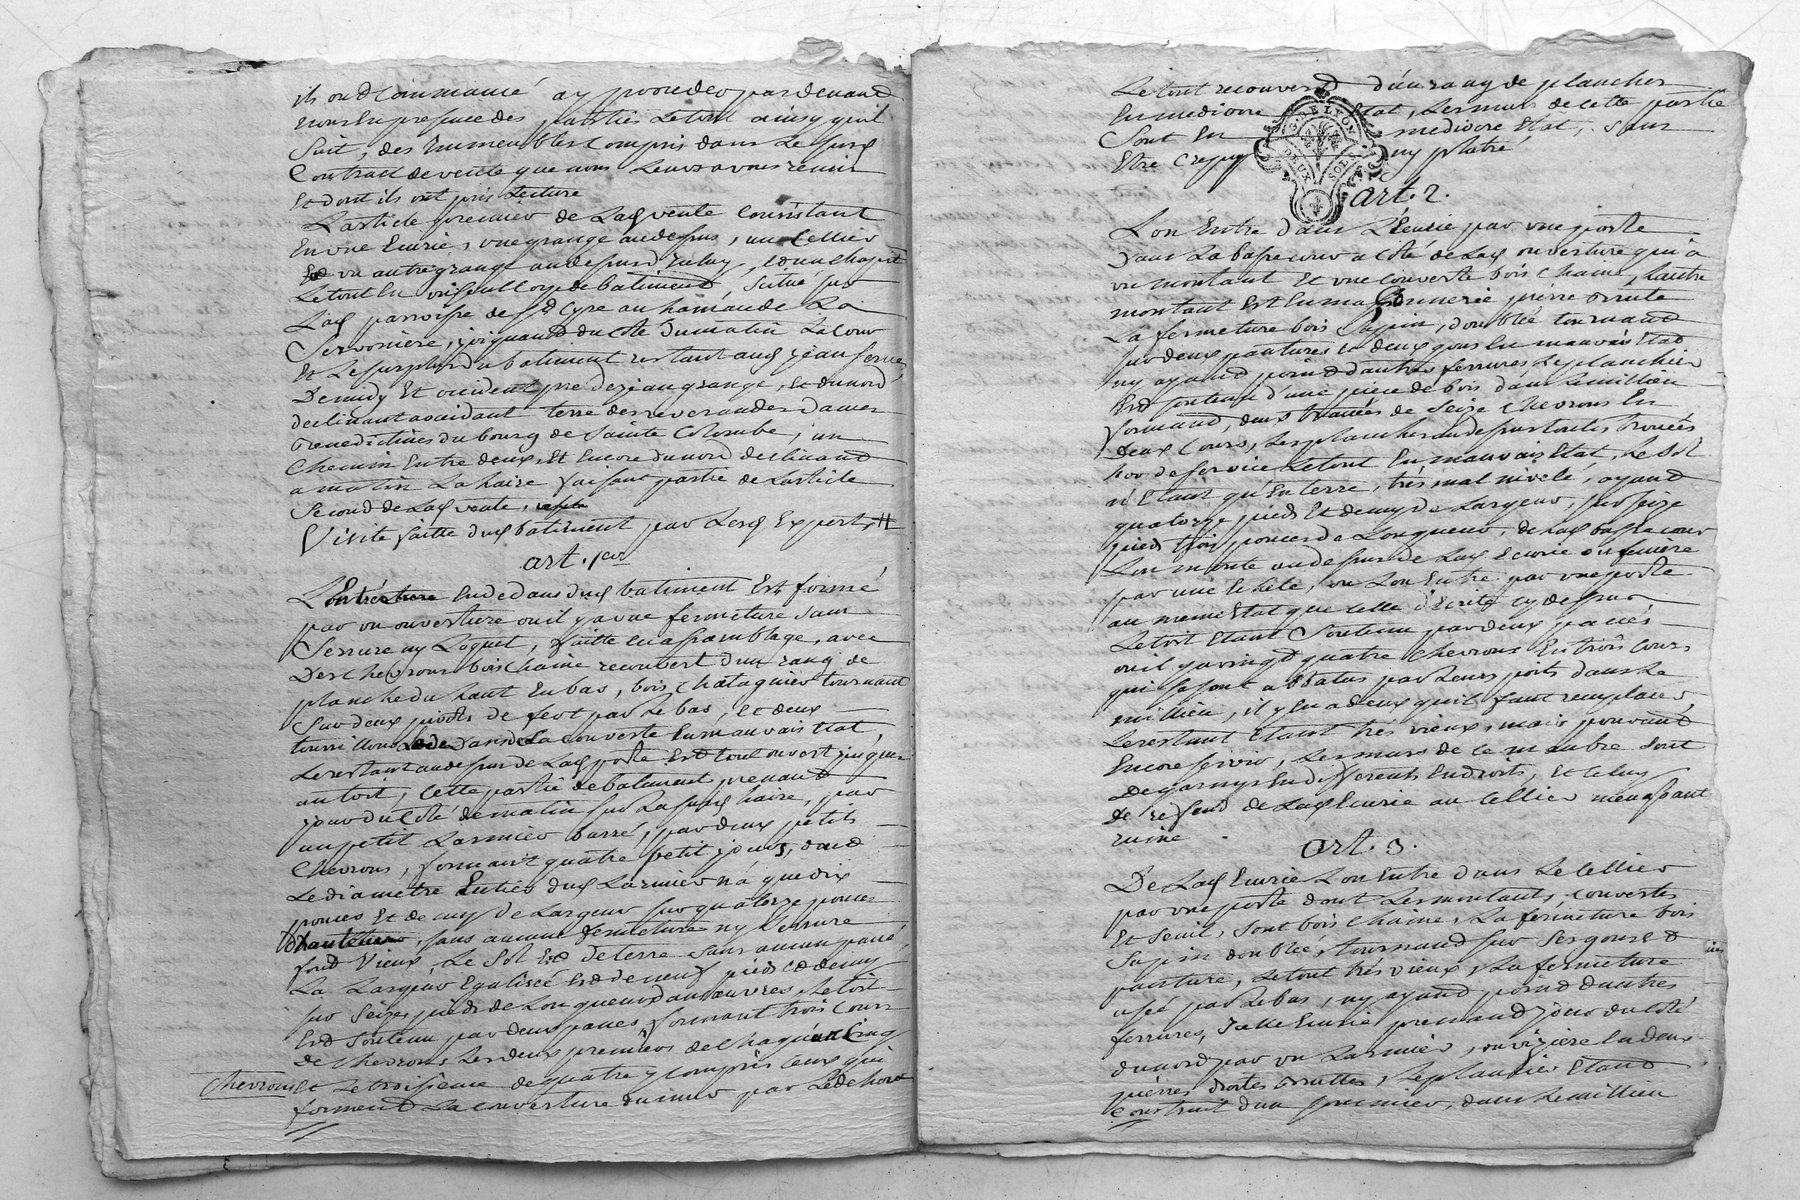 ils ont Commancé a y proceder par devant
nous En presence des parties Le tout ainsy quil
Suit, des Immeubles Compris dans Le susd
Contract de vente que nous Leurs avons remis
Et dont ils ont pris Lecture
L'article premier de Lad vente Consistant
En une Ecurie, une grange au dessus, un Cellier
Et un autre grange au dessus d'iceluy, et un chapit
Le tout En un seul Corps de batiment, Scitué sur
Lad parroisse de St Cyre au hameau de La
Servoniere, joignant du Coté du matin La Cour
Et Le surplus du batiment restant aud jean serve,
De midy Et occident pré de jean grange, et du nord
declinant a occidant terre des reverandes dames
Benedictines du bourg de Sainte Colombe, un
Chemin Entre deux, Et Encore du nord declinant
a matin La haire faisant partie de L'article
Second de Lad vente,
Visite faitte dud batiment par Lesd Experts #
art. 1er
L'Entrée En dedans dud batiment Est formé
par un ouverture ou il y a une fermeture sans
Serrure ny Loquet, faitte En assemblage, avec
Des chevrons bois Chaine recouvert d'un rang de
planche du haut En bas, bois Chatagnier tournant
Sur deux pivots de fert par Le bas, et deux
tourillons dans La couverte En mauvais Etat,
Le restant au dessus de Lad porte Est tout ouvert jusques
au toit, Cette partie de batiment prenant
jour du Coté de matin sur La susd haire, par
un petit Larmier barré, par deux petits
Chevrons, formant quatre petit jours, dont
Le diametre Entier dud Larmier n'a que dix
pouces Et demy de Largeur sur quatorze pouces
d'hauteur, sans aucune fermeture ny ferrure
fort Vieux, Le Sol Est de terre sans aucun pavé,
La Largeur Egalisée Est de neuf pieds et demy
sur Seize pieds de Longueur dans œuvres, Le toit
Est Soutenu par deux panes, formant trois Cours
de Chevrons, Les deux premiers de chaqu'un Cinq
Chevrons Et Le troisieme de quatre y compris Ceux qui
forment La couverture du mur par Le dehors
Le tout recouvert d'un rang de plancher
En mediocre Etat, Les murs de cette partie
Sont En mediocre Etat, sans
Etre Crepy ny platré
G. DE LYON
DEUX SOLS
art. 2.
L'on Entre dans L'Ecurie par une porte
dans La basse cour a Coté de Lad ouverture qui a
un montant Et une Couverte bois Chaine, L'autre
montant Est En massonnerie pierre brute
La fermeture bois Sapin, doublée tournant
sur deux pantures et deux gons En mauvais Etat
ny ayant point d'autres ferrures, Le plancher
Est soutenu d'une piece de bois dans Le millieu
formant, deux travées de Seize Chevrons En
deux Cours, Les planches au dessus toutes trouées
hor de service Le tout En mauvais Etat, Le Sol
n'Etant qu'En terre, très mal nivelé, ayant
quatorze pieds Et demy de Largeur, sur seize
pieds trois pouces de Longueur, de Lad basse cour
L'on monte au dessus de Lad Ecurie ou feniere
par une Echele, ou L'on Entre par une porte
au meme Etat que celle d'Ecritte cy dessus
Le toit Etant Soutenu par deux panes
ou il y a vingt quatre Chevrons En trois Cours
qui se sont abbatus par Leurs poids dans Le
millieu, il y En a deux qu'il faut remplacer,
Le restant Etant très vieux, mais pouvant
Encore servir, Les murs de ce membre Sont
Degarnys En differents Endroits, et Celuy
de refend de Lad Ecurie au Cellier menassant
ruine.
art. 3.
De Lad Ecurie L'on Entre dans Le Cellier
par une porte dont Les montants, Couvertes
Et Seuil, Sont bois Chaine, La fermeture bois
Sapin doublé, tournant sur Ses gons Et
panture, Le tout très vieux, La fermeture
usé par Le bas, ny ayant point d'autres
ferrures, prenant jour du Coté
du nord par un Larmier, ou vizière En deux
pierres droites bruttes, Le plancher Etant
Construit d'un sommier, dans Le millieu